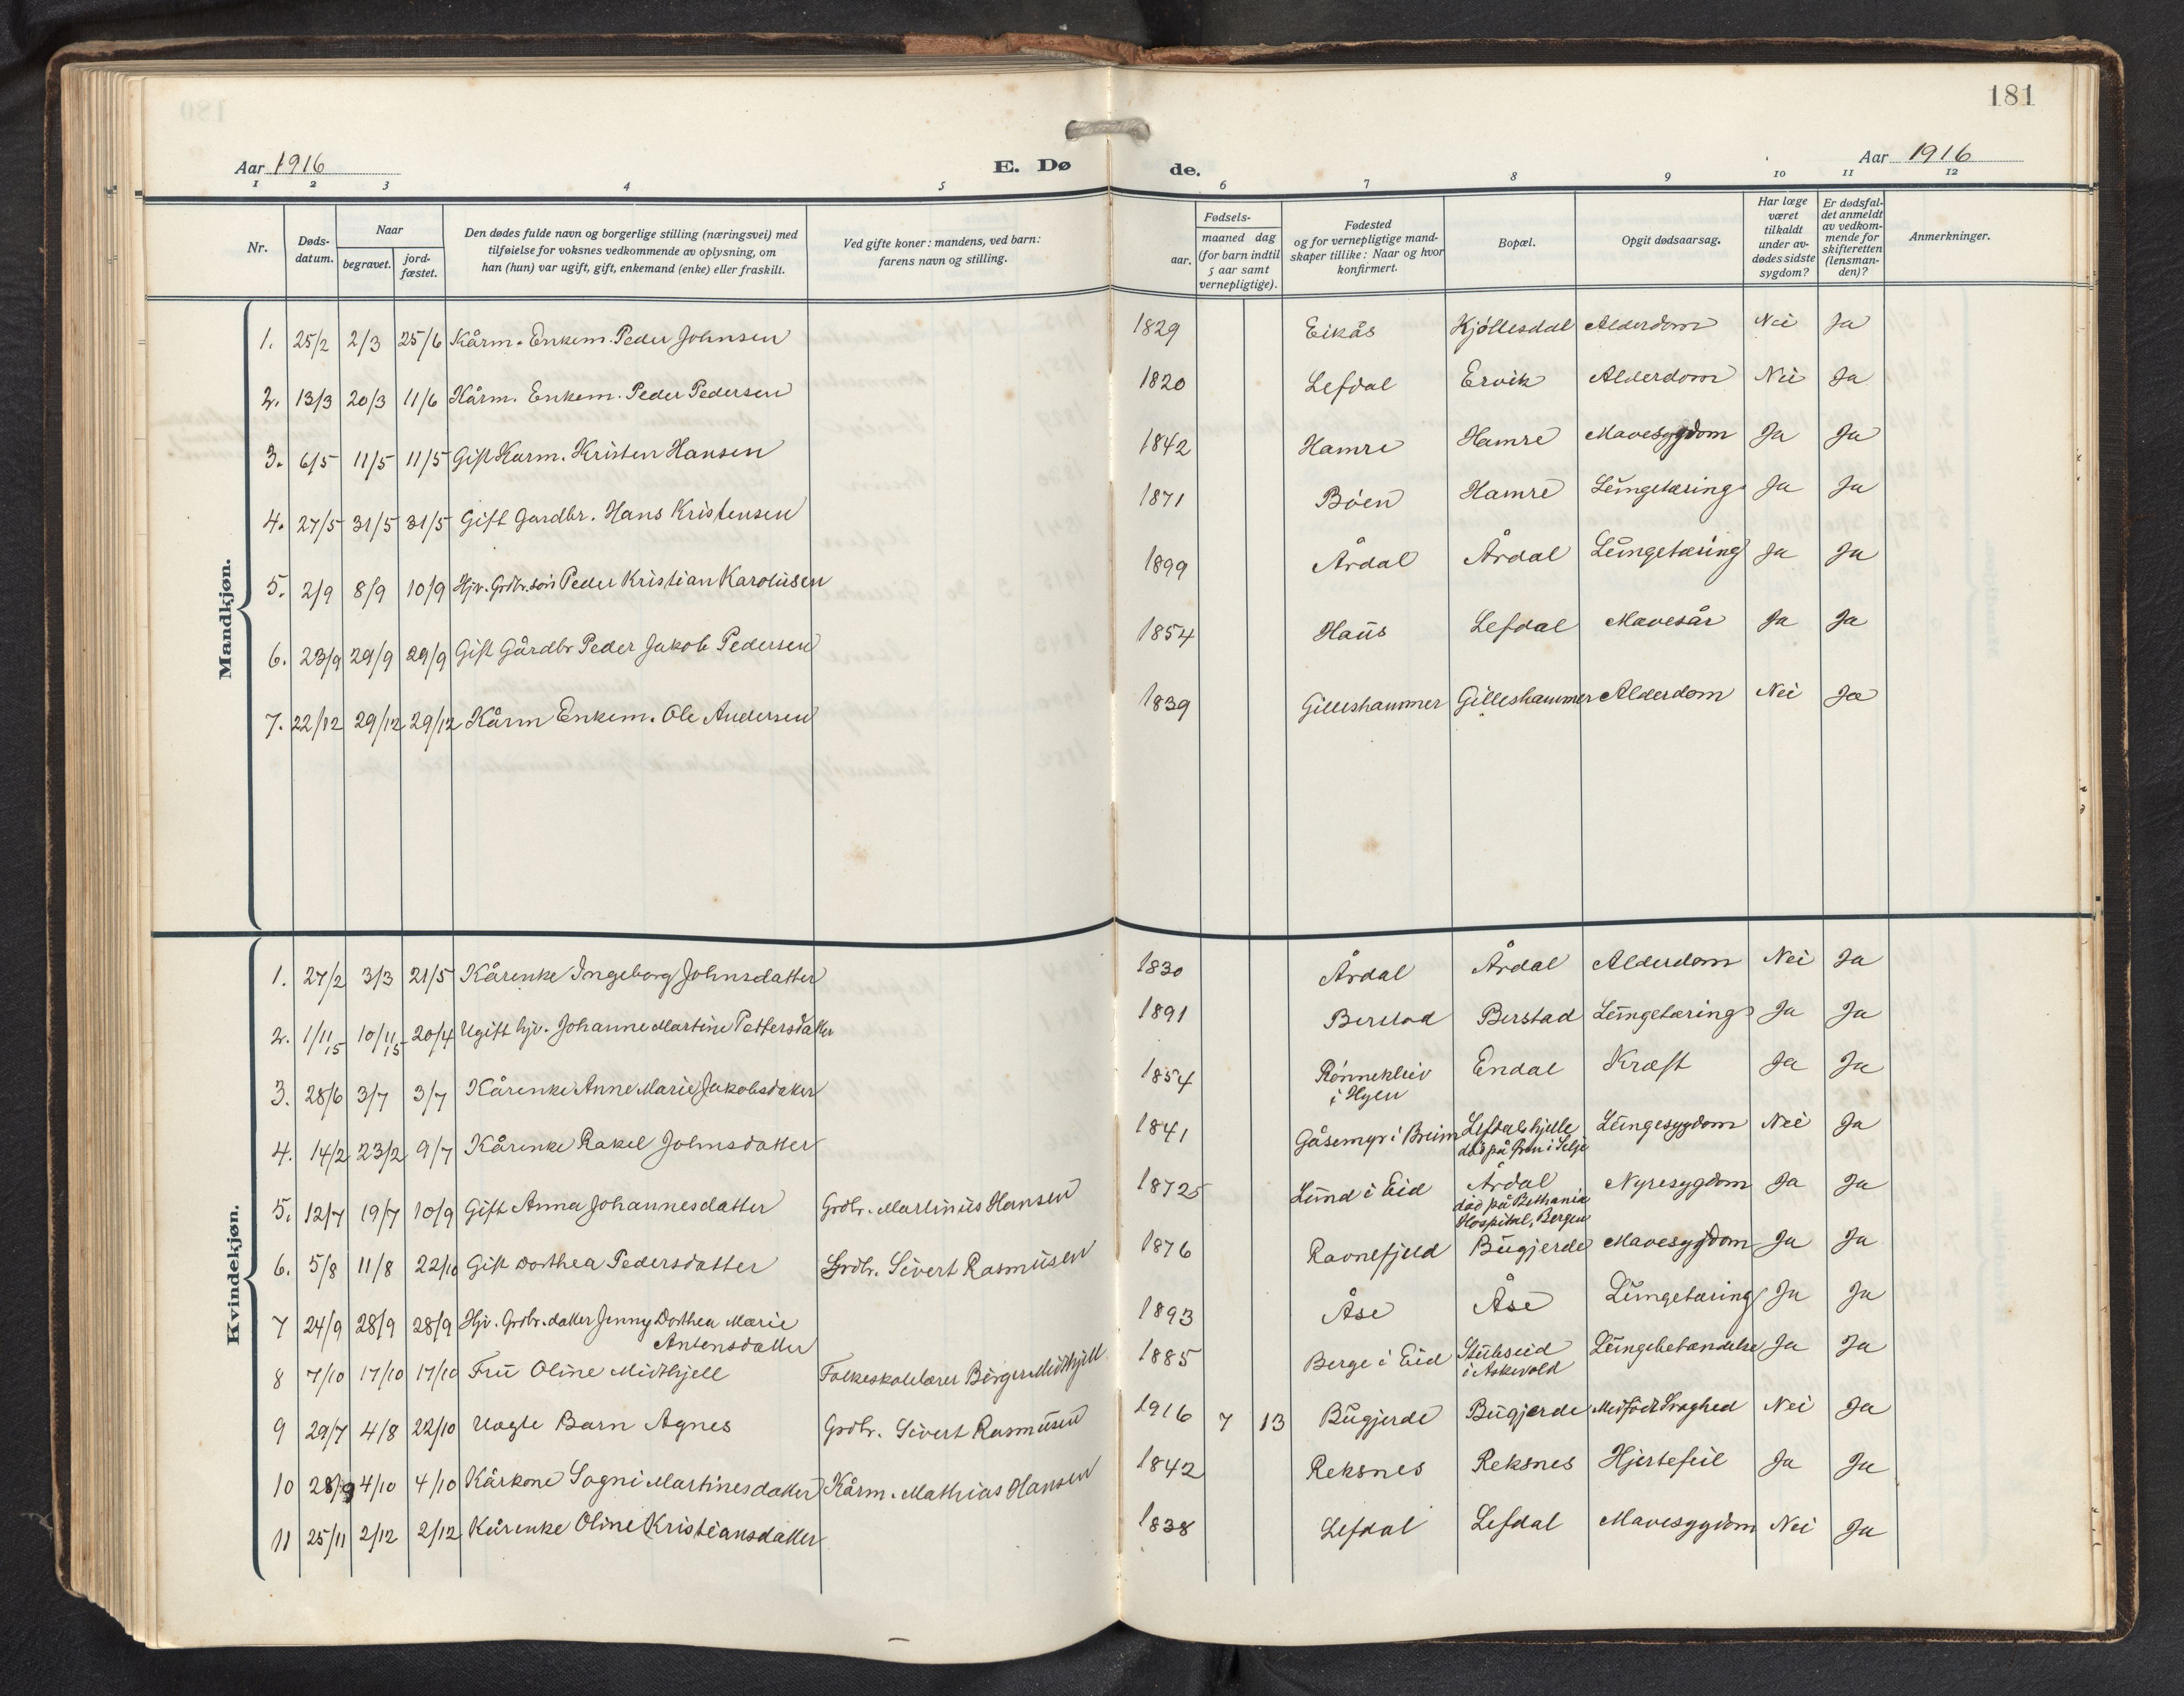 181
Aar 1916
E. Døde.
Aar 1916
1 2 3 4 5 6 7 8 9 10 11 12
Nr.
Døds-
datum.
Naar
begravet.
jord-
fæstet.
Den dødes fulde navn og borgerlige stilling (næringsvei) med
tilføielse for voksnes vedkommende av oplysning, om
han (hun) var ugift, gift, enkemand (enke) eller fraskilt.
Ved gifte koner: mandens, ved barn:
farens navn og stilling.
Fødsels-
aar.
maaned dag
(for barn indtil
5 aar samt
vernepligtige).
Fødested
og for vernepligtige mand-
skaper tillike: Naar og hvor
konfirmert.
Bopæl.
Opgit dødsaarsag.
Har læge
været
tilkaldt
under av-
dødes sidste
sygdom?
Er dødsfal-
det anmeldt
av vedkom-
mende for
skifteretten
(lensman-
den)?
Anmerkninger.
Mandkjøn.
1. 25/2 2/3 25/6 Kårm. Enkem. Peder Johnsen 1829 Eikås Kjøllesdal Alderdom Nei Ja
2. 13/3 20/3 11/6 Kårm. Enkem. Peder Pedersen 1820 Lefdal Ervik Alderdom Nei Ja
3. 6/5 11/5 11/5 Gift Karm. Kristen Hansen 1842 Hamre Hamre Mavesygdom Ja Ja
4. 27/5 31/5 31/5 Gift Gardbr. Hans Kristensen 1871 Bøen Hamre Lungetæring Ja Ja
5. 2/9 8/9 10/9 Hjv. Grdbr.søn Peder Kristian Karolusen 1899 Årdal Årdal Lungetæring Ja Ja
6. 23/9 29/9 29/9 Gift Gårdbr Peder Jakob Pedersen 1854 Haus Lefdal Mavesår Ja Ja
7. 22/12 29/12 29/12 Kårm Enkem. Ole Andersen 1839 Gilleshammer Gilleshammer Alderdom Nei Ja
Kvindekjøn.
1. 27/2 3/3 21/5 Kårenke Ingeborg Johnsdatter 1830 Årdal Årdal Alderdom Nei Ja
2. 1/11 15 10/11 15 20/4 Ugift hjv. Johanne Martine Pettersdatter 1891 Berstad Berstad Lungetæring Ja Ja
3. 28/6 3/7 3/7 Kårenke Anne Marie Jakobsdatter 1854 Rønnekleiv Endal Kræft Ja Ja
i Hyen
4. 14/2 23/2 9/7 Kårenke Rakel Johnsdatter 1841 Gåsemyr i Breim Lefdalshjelle Lungesygdom Nei Ja
død på i Selje
5. 12/7 19/7 10/9 Gift Anna Johannesdatter Grdbr. Martinus Hansen 18725 Lund i Eid Årdal Nyresygdom Ja Ja
død på Bethania
Hospital, Bergen
6. 5/8 11/8 22/10 Gift Dorthea Pedersdatter Grdbr. Sivert Rasmusen 1876 Ravnefjeld Bugjerde Mavesygdom Ja Ja
7 24/9 28/9 28/9 Hjv. Grdbr.datter Jenny Dorthea Marie 1893 Åse Åse Lungetæring Ja Ja
Antonsdatter
8 7/10 17/10 17/10 Fru Oline Midthjell Folkeskolelærer Børger Midthjell 1885 Berge i Eid Stubseid Lungebetændelse Ja Ja
i Askevold
9 29/7 4/8 22/10 Uægte Barn Agnes Grdbr. Sivert Rasmusen 1916 7 13 Bugjerde Bugjerde Medfødt Svaghed Nei Ja
10 28/9 4/10 4/10 Kårkone Sogni Martinesdatter Kårm. Mathias Hansen 1842 Reksnes Reksnes Hjertefeil Ja Ja
11 25/11 2/12 2/12 Kårenke Oline Kristiansdatter 1838 Lefdal Lefdal Mavesygdom Nei Ja